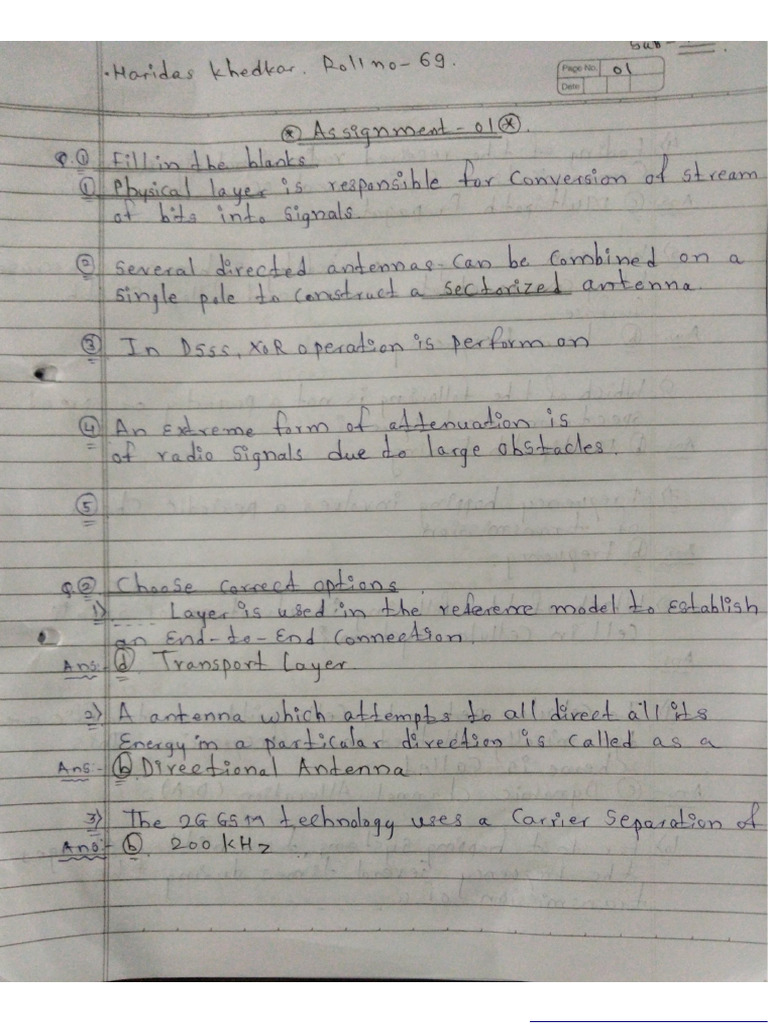 Sub-
Haridas Khedkar. Roll no-69.
Page No. 01
Date
Assignment-01
Q.① Fill in the blanks
① Physical layer is responsible for Conversion of stream
of bits into signals.
② Several directed antennas can be combined on a
single pole to construct a sectorized antenna.
③ In DSSS, XOR operation is perform on
④ An Extreme form of attenuation is
of radio signals due to large obstacles.
⑤
Q.② Choose correct options.
1) ---- Layer is used in the reference model to Establish
an End-to-End Connection.
Ans:- ⓓ Transport Layer.
2) A antenna which attempts to all direct all its
Energy in a particular direction is called as a
Ans:- ⓑ Directional Antenna
3) The 2G GSM technology uses a Carrier Separation of
Ans:- ⓑ 200 KHz